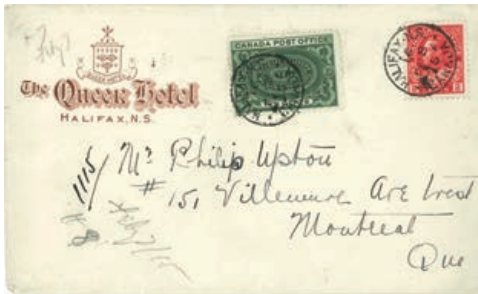 The Queen Hotel
HALIFAX, N.S.
CANADA POST OFFICE
HALIFAX, N.S.
1115/ Mr Philip Upton
# 151 Villeneuve Ave West
Montreal
Que
# 8